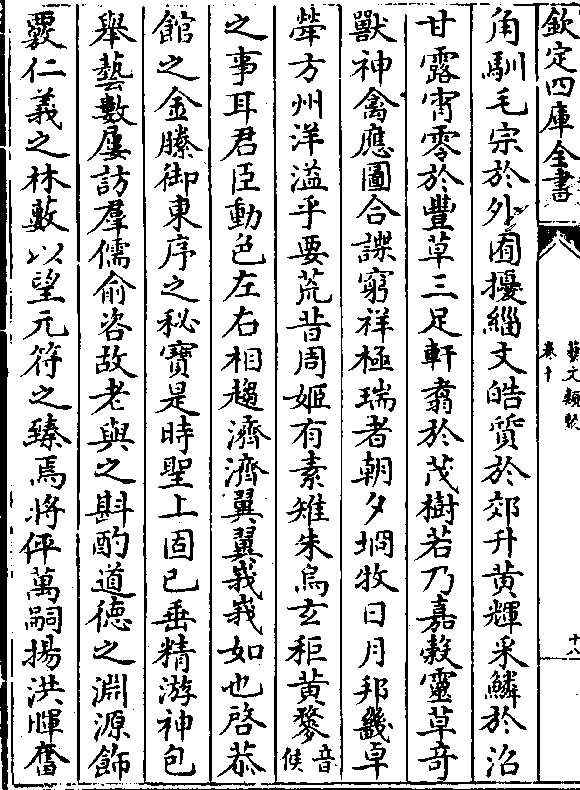 欽定四庫全書
藝文類聚
卷十
十八
角馴毛宗於外囿擾緇文皓質於郊升黄輝采鱗於沼
甘露宵零於豐草三足軒翥於茂樹若乃嘉糓靈草竒
獸神禽應圖合諜窮祥極瑞者朝夕坰牧日月邦畿卓
犖方州洋溢乎要荒昔周姬有素雉朱烏玄秬黄䵆音侯
之事耳君臣動色左右相趨濟濟翼翼峩峩如也啓恭
館之金縢御東序之秘寶是時聖上固已垂精游神包
舉藝數屢訪羣儒俞咨故老與之斟酌道德之淵源飾
覈仁義之林藪以望元符之臻焉將伻萬嗣揚洪暉奮